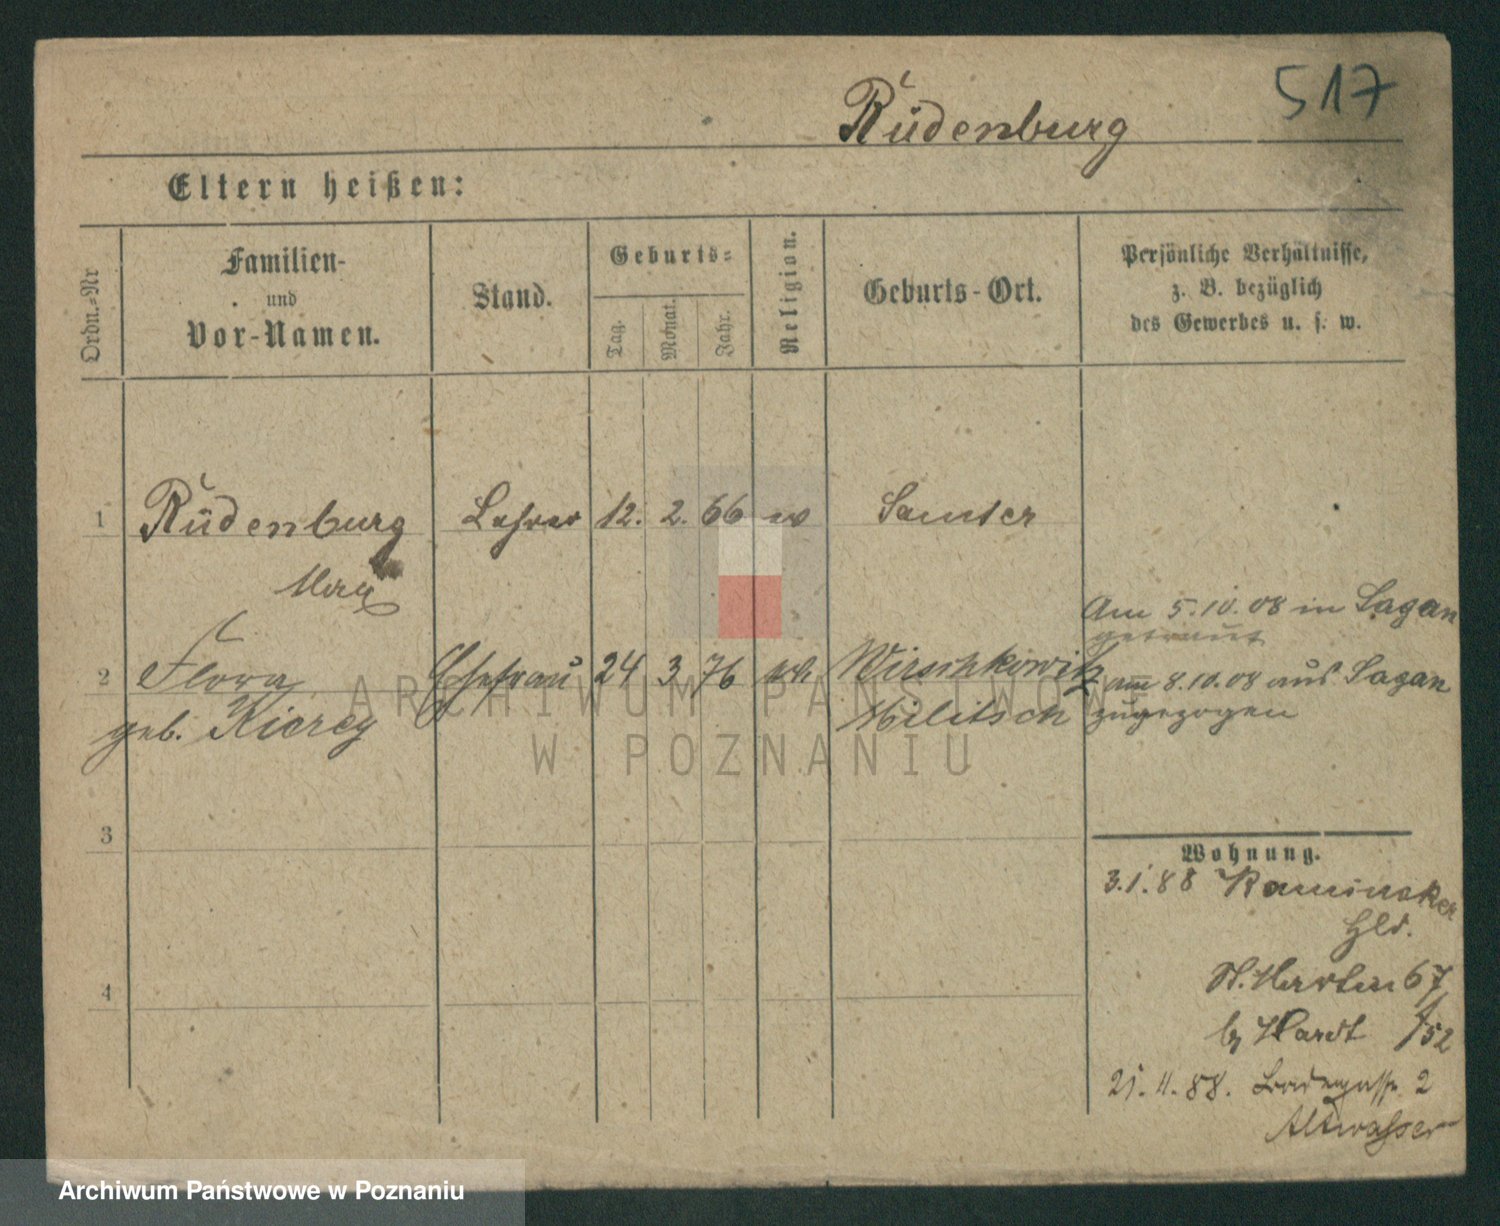 517
Rüdenburg
Eltern heißen:
Ordn.-Nr
Familien-
und
Vor-Namen.
Stand.
Geburts-
Tag.
Monat.
Jahr.
Religion.
Geburts-Ort.
Persönliche Verhältnisse,
z. B. bezüglich
des Gewerbes u. s. w.
1 Rüdenburg Lehrer 12. 2. 66 Samter
Max
Am 5.10.08 in Sagan
getraut
2 Flora Ehefrau 24 3 76 Wirschkowitz am 8.10.08 aus Sagan
geb. Militsch zugezogen
ARCHIWUM PAŃSTWOWE
W POZNANIU
3
Wohnung.
3.1.88
St. Martin 67
4
Hardt /52
21.11.88. Badegasse 2
Altwasser
Archiwum Państwowe w Poznaniu